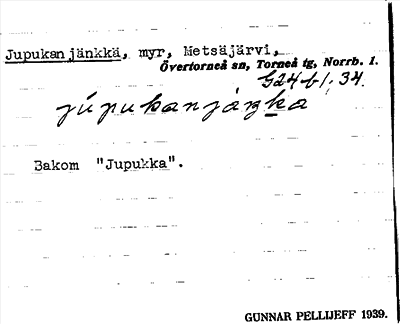 Jupukanjänkkä, myr, Metsäjärvi,
Övertorneå sn, Torneå tg, Norrb. l.
G24f1; 34.
júpukanjáŋka
Bakom "Jupukka".
GUNNAR PELLIJEFF 1939.